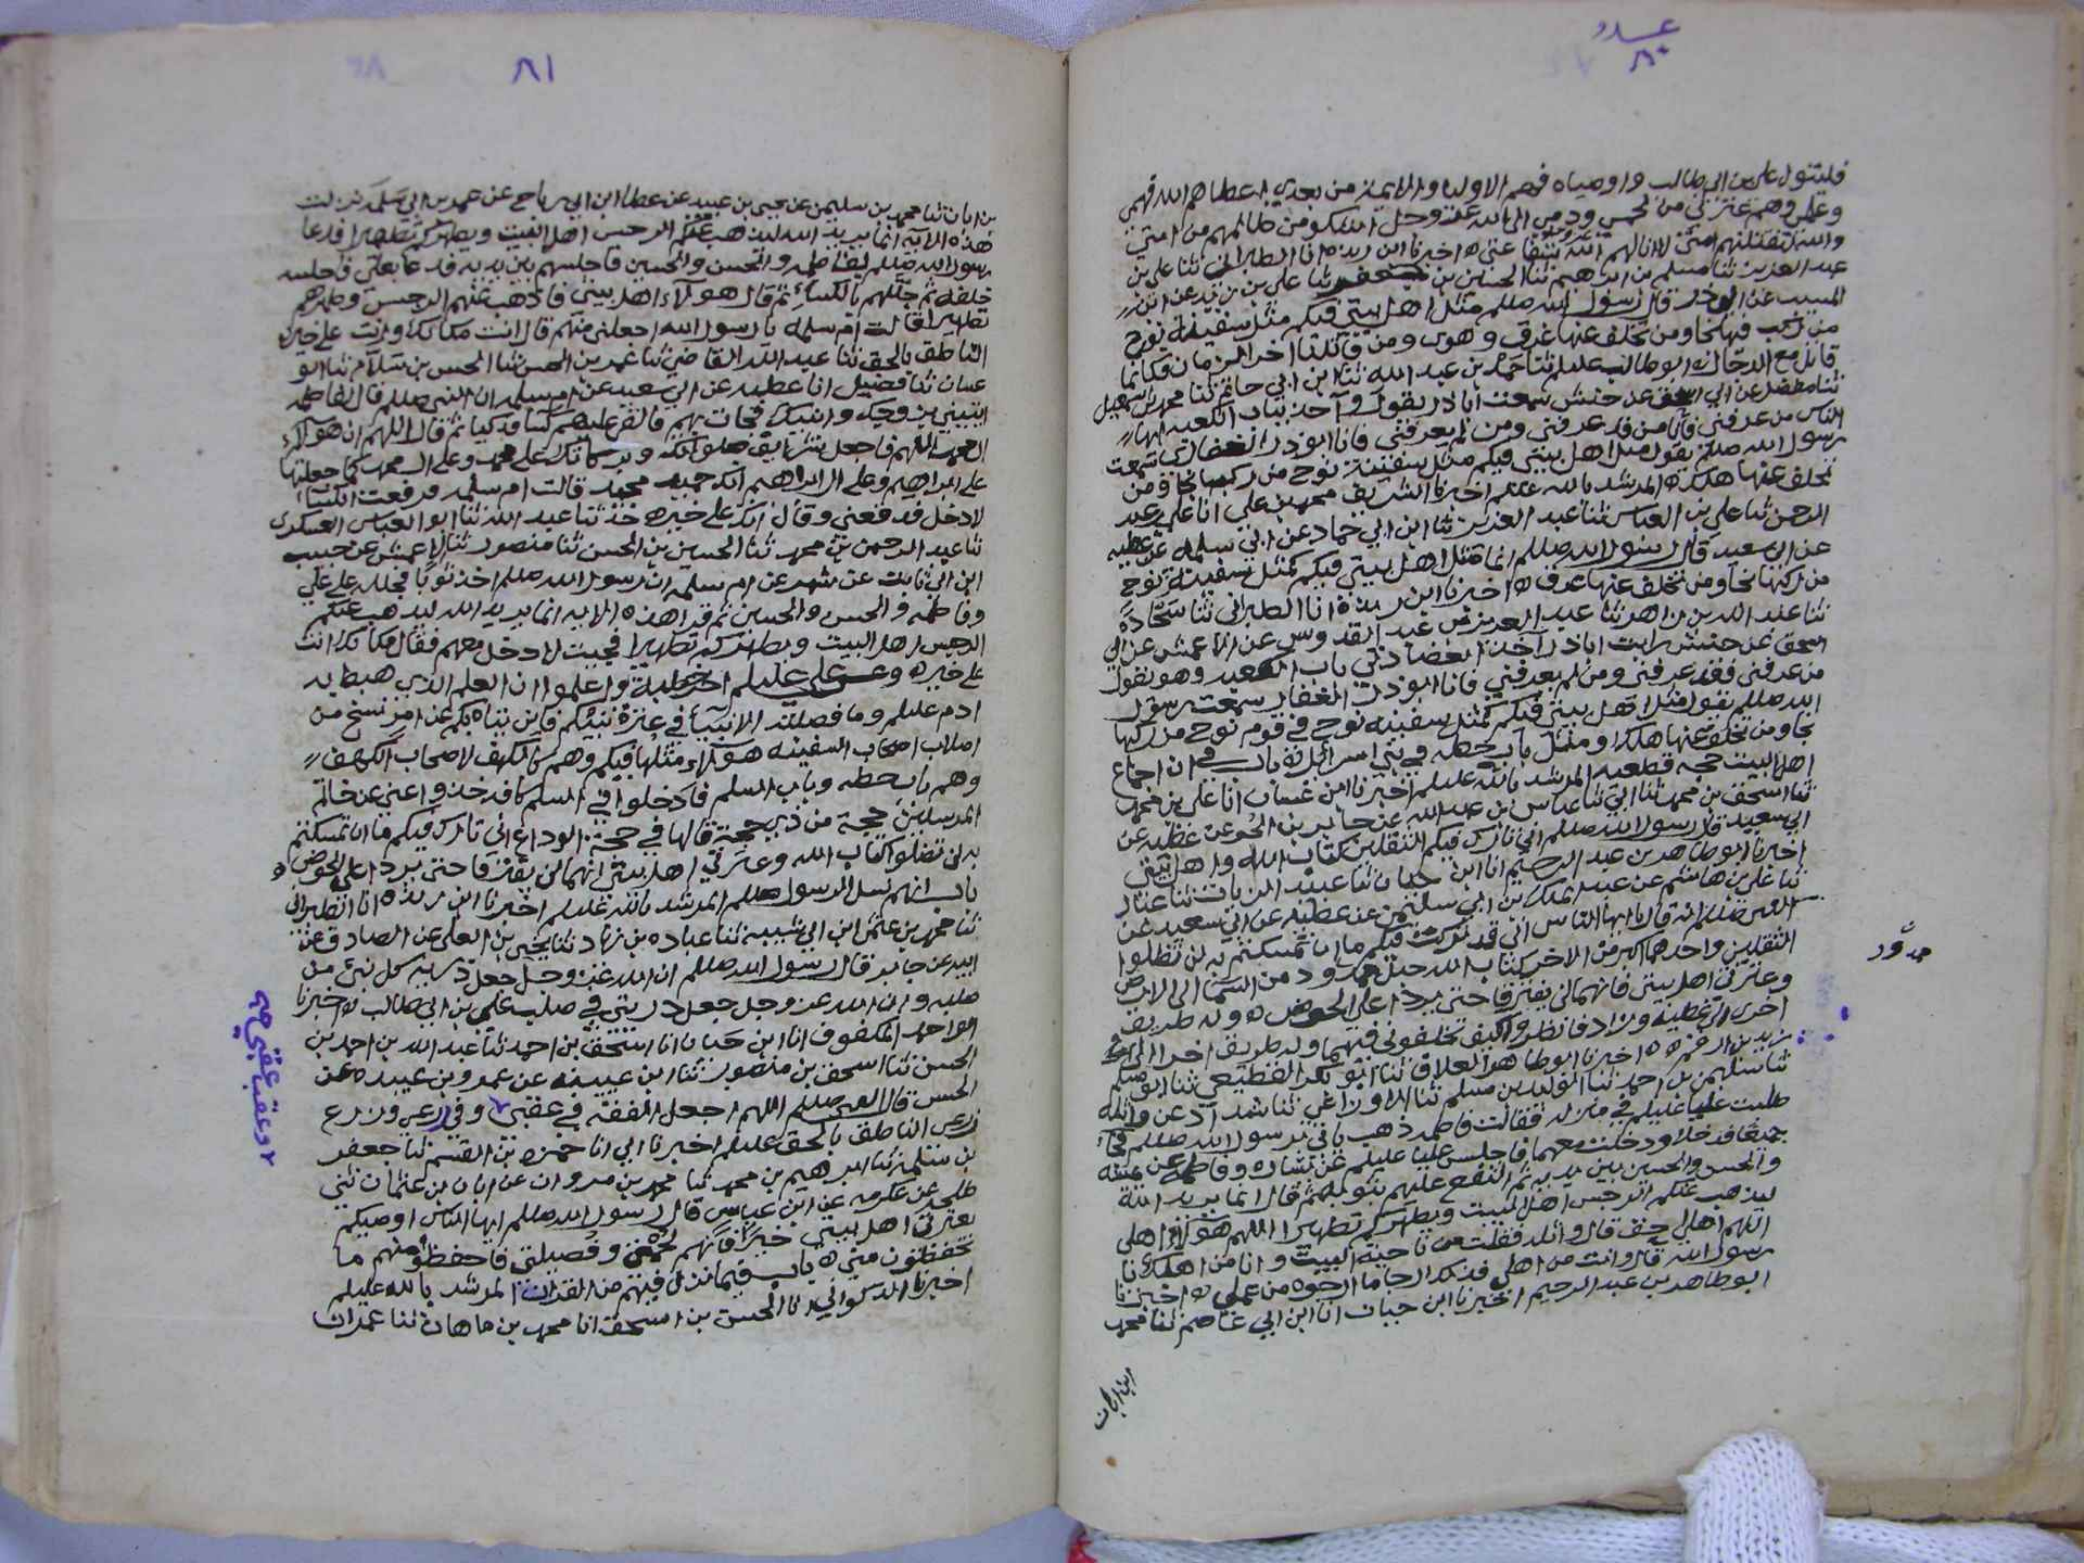 ٨٠
فليتول علي بن ابي طالب واوصياه فهم الاوليا والايمة من بعدي اعطاهم الله فهمي
وعلمي وهم عترتي من لحمي ودمي الى الله عز وجل اشكو من ظالمهم من امتي
والله لتقتلنهم امتي لا انالهم الله شفاعتي ه اخبرنا ابن ريذه انا الطبراني ثنا علي بن
عبد العزيز ثنا مسلم بن ابرهيم ثنا الحسن بن جعفر ثنا علي بن زيد عن ابن
المسيب عن ابي ذر قال رسول الله صللم مثل اهل بيتي فيكم مثل سفينة نوح
من ركب فيها نجا ومن تخلف عنها غرق وهوى ومن قاتلنا اخر الزمان فكانما
قاتل مع الدجال ه ابو طالب عليلم ثنا حمد بن عبد الله ثنا ابن ابي حاتم ثنا محمد بن اسمعيل
ثنا مفضل عن ابي اسحق عن حنش سمعت اباذر يقول و آخذ بباب الكعبه ايها
الناس من عرفني فانا من قد عرفني ومن لم يعرفني فانا ابوذر الغفاري سمعت
رسول الله صللم يقول مثل اهل بيتي فيكم مثل سفينة نوح من ركبها نجا ومن
تخلف عنها هلك ه المرشد بالله عليلم اخبرنا الشريف محمد بن علي انا علي بن عبد
الرحمن ثنا علي بن العباس ثنا عبد العزيز ثنا ابن ابي حماد عن ابي سلمه عن عطيه
عن ابي سعيد قال رسول الله صللم انما مثل اهل بيتي فيكم كمثل سفينة نوح
من ركبها نجا ومن تخلف عنها غرق ه اخبرنا ابن ريذة انا الطبراني ثنا سجادة
ثنا عبد الله بن زاهر ثنا عبد العزيز بن عبد القدوس عن الاعمش عن ابي
اسحق عن حنش رايت اباذر آخذ ابعضادتي باب الكعبه وهو يقول
من عرفني فقد عرفني ومن لم يعرفني فانا ابوذر الغفاري سمعت رسول
الله صللم يقول مثل اهل بيتي فيكم كمثل سفينه نوح في قوم نوح من ركبها
نجا ومن تخلف عنها هلك ومثل باب حطه في بني اسرائيل ه باب في ان اجماع
اهل البيت حجه قطعيه المرشد بالله عليلم اخبرنا ابن غسان انا علي بن محمد
ثنا اسحق بن محمد ثنا ابي ثنا عباس بن عبد الله عن جابر بن الحر عن عطيه عن
ابي سعيد قال رسول الله صللم اني تارك فيكم الثقلين كتاب الله واهل بيتي
اخبرنا ابو طاهر بن عبد الرحيم انا ابن حبان ثنا عبيد الزيات ثنا عباد
ثنا علي بن هاشم عن عبد الملك بن ابي سليمن عن عطيه عن ابي سعيد عن
النبي صللم انه قال يا ايها الناس اني قد تركت فيكم ما ان تمسكتم به لن تضلوا
الثقلين واحدهما اكبر من الاخر كتاب الله حبل ممدود من السما الى الارض
وعترتي اهل بيتي فانهما لن يفترقا حتى يردا علي الحوض ه وله طريق
اخرى الى عطيه وزاد فانظروا كيف تخلفوني فيهما وله طريق اخرا الى
زيد بن ارقم ه اخبرنا ابو طاهر العلاف ثنا ابو بكر القطيعي ثنا ابو مسلم
ثنا سليمن بن احمد ثنا الوليد بن مسلم ثنا الاوزاعي ثنا شداد عن واثله
طلبت عليا عليلم في منزله فقالت فاطمه ذهب ياتي برسول الله صللم فجا
جميعا فدخلا ودخلت معهما فاجلس عليا عليلم عن يساره وفاطمه عن يمينه
والحسن والحسين بين يديه ثم التفع عليهم بثوبه ثم قال انما يريد الله
ليذهب عنكم الرجس اهل البيت ويطهركم تطهيرا اللهم هولاء اهلي
اللهم اهلي احق قال واثله فقلت من ناحية البيت وانا من اهلك يا
رسول الله قال وانت من اهلي فذلك ارجا ما ارجوه من عملي ه اخبرنا
ابو طاهر بن عبد الرحيم اخبرنا ابن حبان انا ابن ابي عاصم ثنا محمد
بن ابان
ممدود
٨١
بن ابان ثنا محمد بن سليمن عن يحيى بن عبيد عن عطا ابن ابي رباح عن عمر بن ابي سلمه نزلت
هذه الايه انما يريد الله ليذهب عنكم الرجس اهل البيت ويطهركم تطهيرا فدعا
رسول الله صللم لفاطمه والحسن والحسين فاجلسهم بين يديه فدعا بعلي فاجلسه
خلفه ثم جللهم بالكساء ثم قال هولاء اهل بيتي فاذهب عنهم الرجس وطهرهم
تطهيرا قالت ام سلمه يا رسول الله اجعلني منهم قال انت مكانك وانت على خير ه
الناطق بالحق ثنا عبد الله القاضي ثنا عمر بن الحسن ثنا الحسن بن سلام ثنا ابو
غسان ثنا فضيل انا عطيه عن ابي سعيد عن ام سلمه ان النبي صللم قال لفاطمه
ايتيني بزوجك وابنيك فجات بهم فالقى عليهم كسا فدكيا ثم قال اللهم ان هولاء
ال محمد اللهم فاجعل شرايف صلواتك وبركاتك على محمد وعلى ال محمد كما جعلتها
على ابراهيم وعلى ال ابراهيم انك حميد مجيد قالت ام سلمه فرفعت الكساء
لادخل فدفعني وقال انك على خير ه ثنا عبد الله ثنا ابو العباس العسكري
ثنا عبد الرحمن بن محمد ثنا الحسين بن الحسن ثنا منصور ثنا الاعمش عن حبيب
ابن ابي ثابت عن شهر عن ام سلمه ان رسول الله صللم اخذ ثوبا فجلله على علي
وفاطمه والحسن والحسين ثم قرا هذه الايه انما يريد الله ليذهب عنكم
الرجس اهل البيت ويطهركم تطهيرا فجيت لادخل معهم فقال مكانك انت
على خير ه وعن علي عليلم اخر خطبة واعلموا ان العلم الذي هبط به
ادم عليلم وما فضلت به الانبيآء في عترة نبيكم فاين يتاه بكم عن امر نسخ من
اصلاب اصحاب السفينه هولاء مثلها فيكم وهم كالكهف لاصحاب الكهف
وهم باب حطه وباب السلم فادخلوا في السلم كافه خذوا عني عن خاتم
المرسلين حجة من ذي حجة قالها في حجة الوداع اني تارك فيكم ما ان تمسكتم
به لن تضلوا كتاب الله وعترتي اهل بيتي انهما لن يفترقا حتى يردا علي الحوض ه
باب انهم نسل الرسول صللم المرشد بالله عليلم اخبرنا ابن ريذه انا الطبراني
ثنا محمد بن عثمن ابن ابي شيبه ثنا عباده بن زياد ثنا يحيى بن العلى عن الصادق عن
ابيه عن جابر قال رسول الله صللم ان الله عز وجل جعل ذرية كل نبي من
صلبه وان الله عز وجل جعل ذريتي في صلب علي بن ابي طالب ه اخبرنا
ابو احمد المكفوف انا ابن حبان انا اسحق بن احمد ثنا عبد الله بن احمد بن
الحسن ثنا اسحق بن منصور ثنا ابن عيينه عن عمرو بن عبيده عن
الحسن قال النبي صللم اللهم اجعل الفقه في عقبي ٢ وفي زرعي وزرع
زرعي الناطق بالحق عليلم اخبرنا ابي انا حمزه بن القسم ثنا جعفر
بن سلمه ثنا ابرهيم بن محمد ثنا محمد بن مروان عن ابان بن عثمان ثني
طلحي عن عكرمه عن ابن عباس قال رسول الله صللم ايها الناس اوصيكم
بعترتي اهل بيتي خيرا فانهم لحمتي وفصيلتي فاحفظوا منهم ما
تحفظون مني ه باب فيما نزل فيهم من القران المرشد بالله عليلم
اخبرنا الذكواني انا الحسن بن اسحق انا محمد بن ماهان ثنا عمران
٢ وعقب عقبي صح